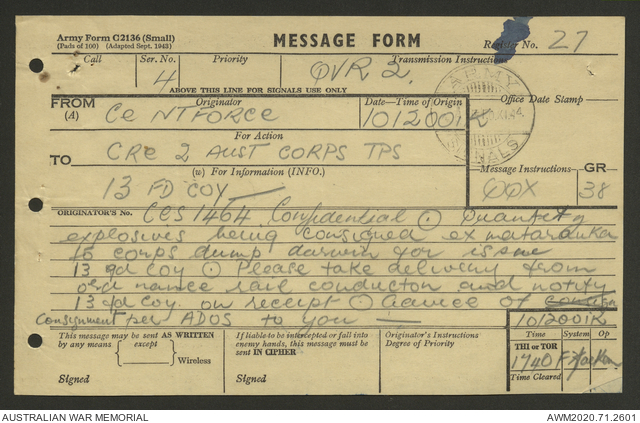 Army Form C2136 (Small)
(Pads of 100) (Adapted Sept. 1943)
MESSAGE FORM
Register No. 27
Call
Ser. No.
Priority
Transmission Instructions
4
QVR 2.
ABOVE THIS LINE FOR SIGNALS USE ONLY
FROM
(A)
Originator
Date—Time of Origin
Office Date Stamp
Ce NTFORCE
101200 K
ARMY
SIGNALS
For Action
TO
CRE 2 AUST CORPS TPS
(w) For Information (INFO.)
Message Instructions
GR
13 FD COY
QQX
38
ORIGINATOR'S No.
CES 1464 Confidential ⊙ Quantity
explosives being consigned ex mataranka
to corps dump darwin for issue
13 fd coy ⊙ Please take delivery from
ordnance rail conductor and notify
13 fd coy. on receipt ⊙ advice of
consignment per ADOS to you —
101200K
This message may be sent AS WRITTEN
by any means
except
Wireless
Signed
If liable to be intercepted or fall into
enemy hands, this message must be
sent IN CIPHER
Signed
Originator's Instructions
Degree of Priority
Time
System
Op
THI or TOR
1740
Time Cleared
AUSTRALIAN WAR MEMORIAL
AWM2020.71.2601